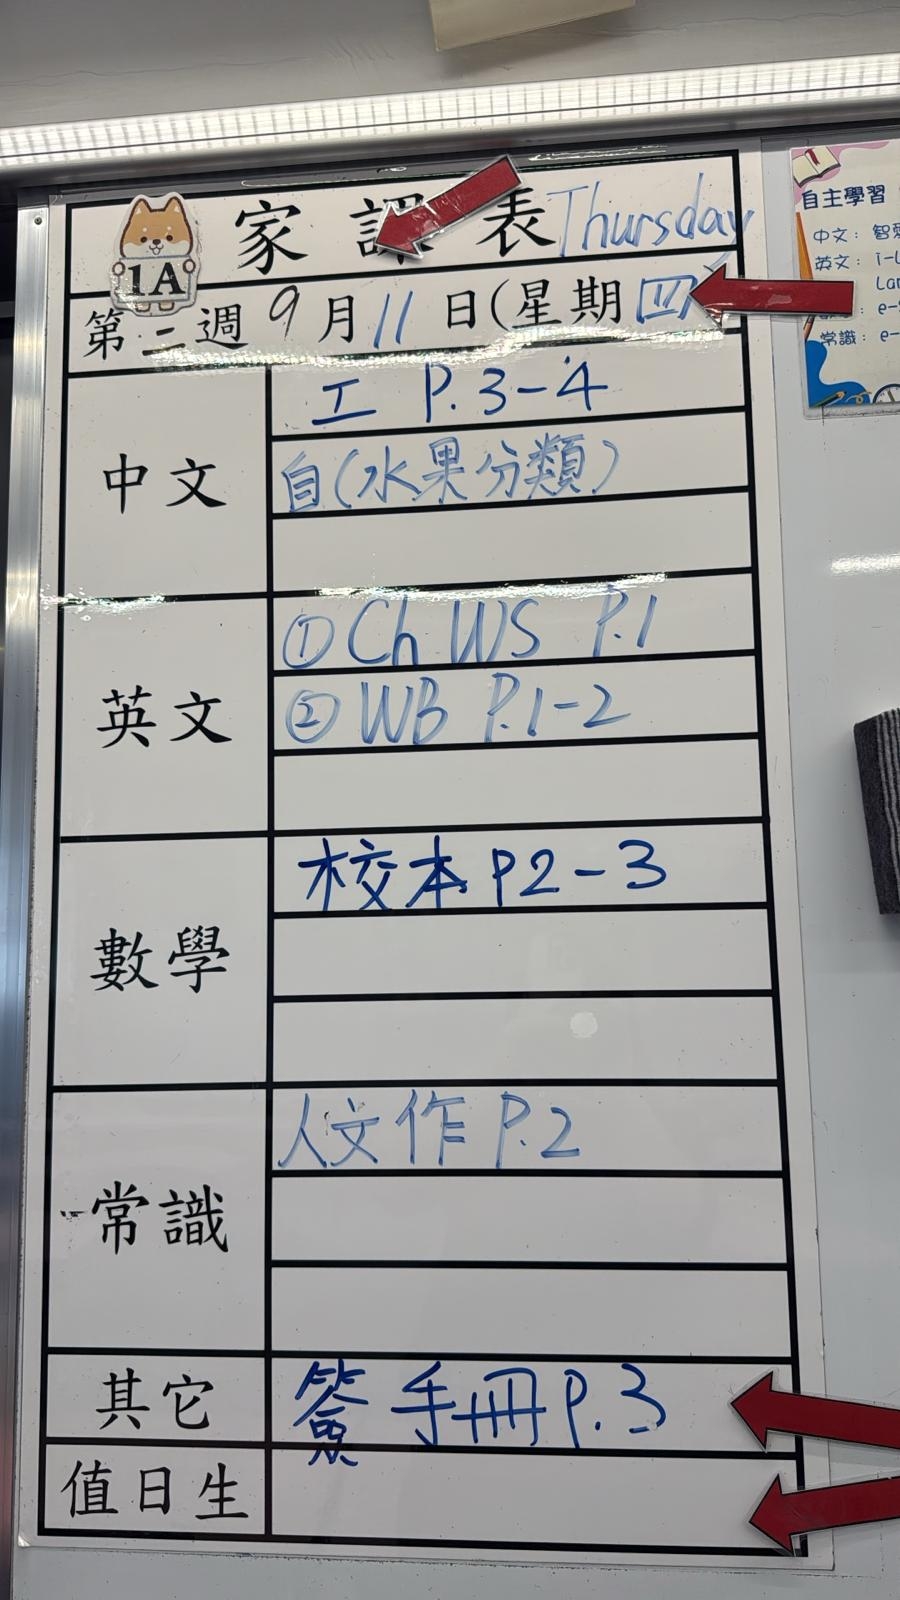 家課表 Thursday
1A
第二週 9月11日(星期四)
中文
工 P.3-4
自(水果分類)
英文
① Ch WS P.1
② WB P.1-2
數學
校本 P2-3
常識
人文作 P.2
其它
簽手冊 P.3
值日生
自主學習
中文：智
英文：i-L
Lar
e-
常識：e-